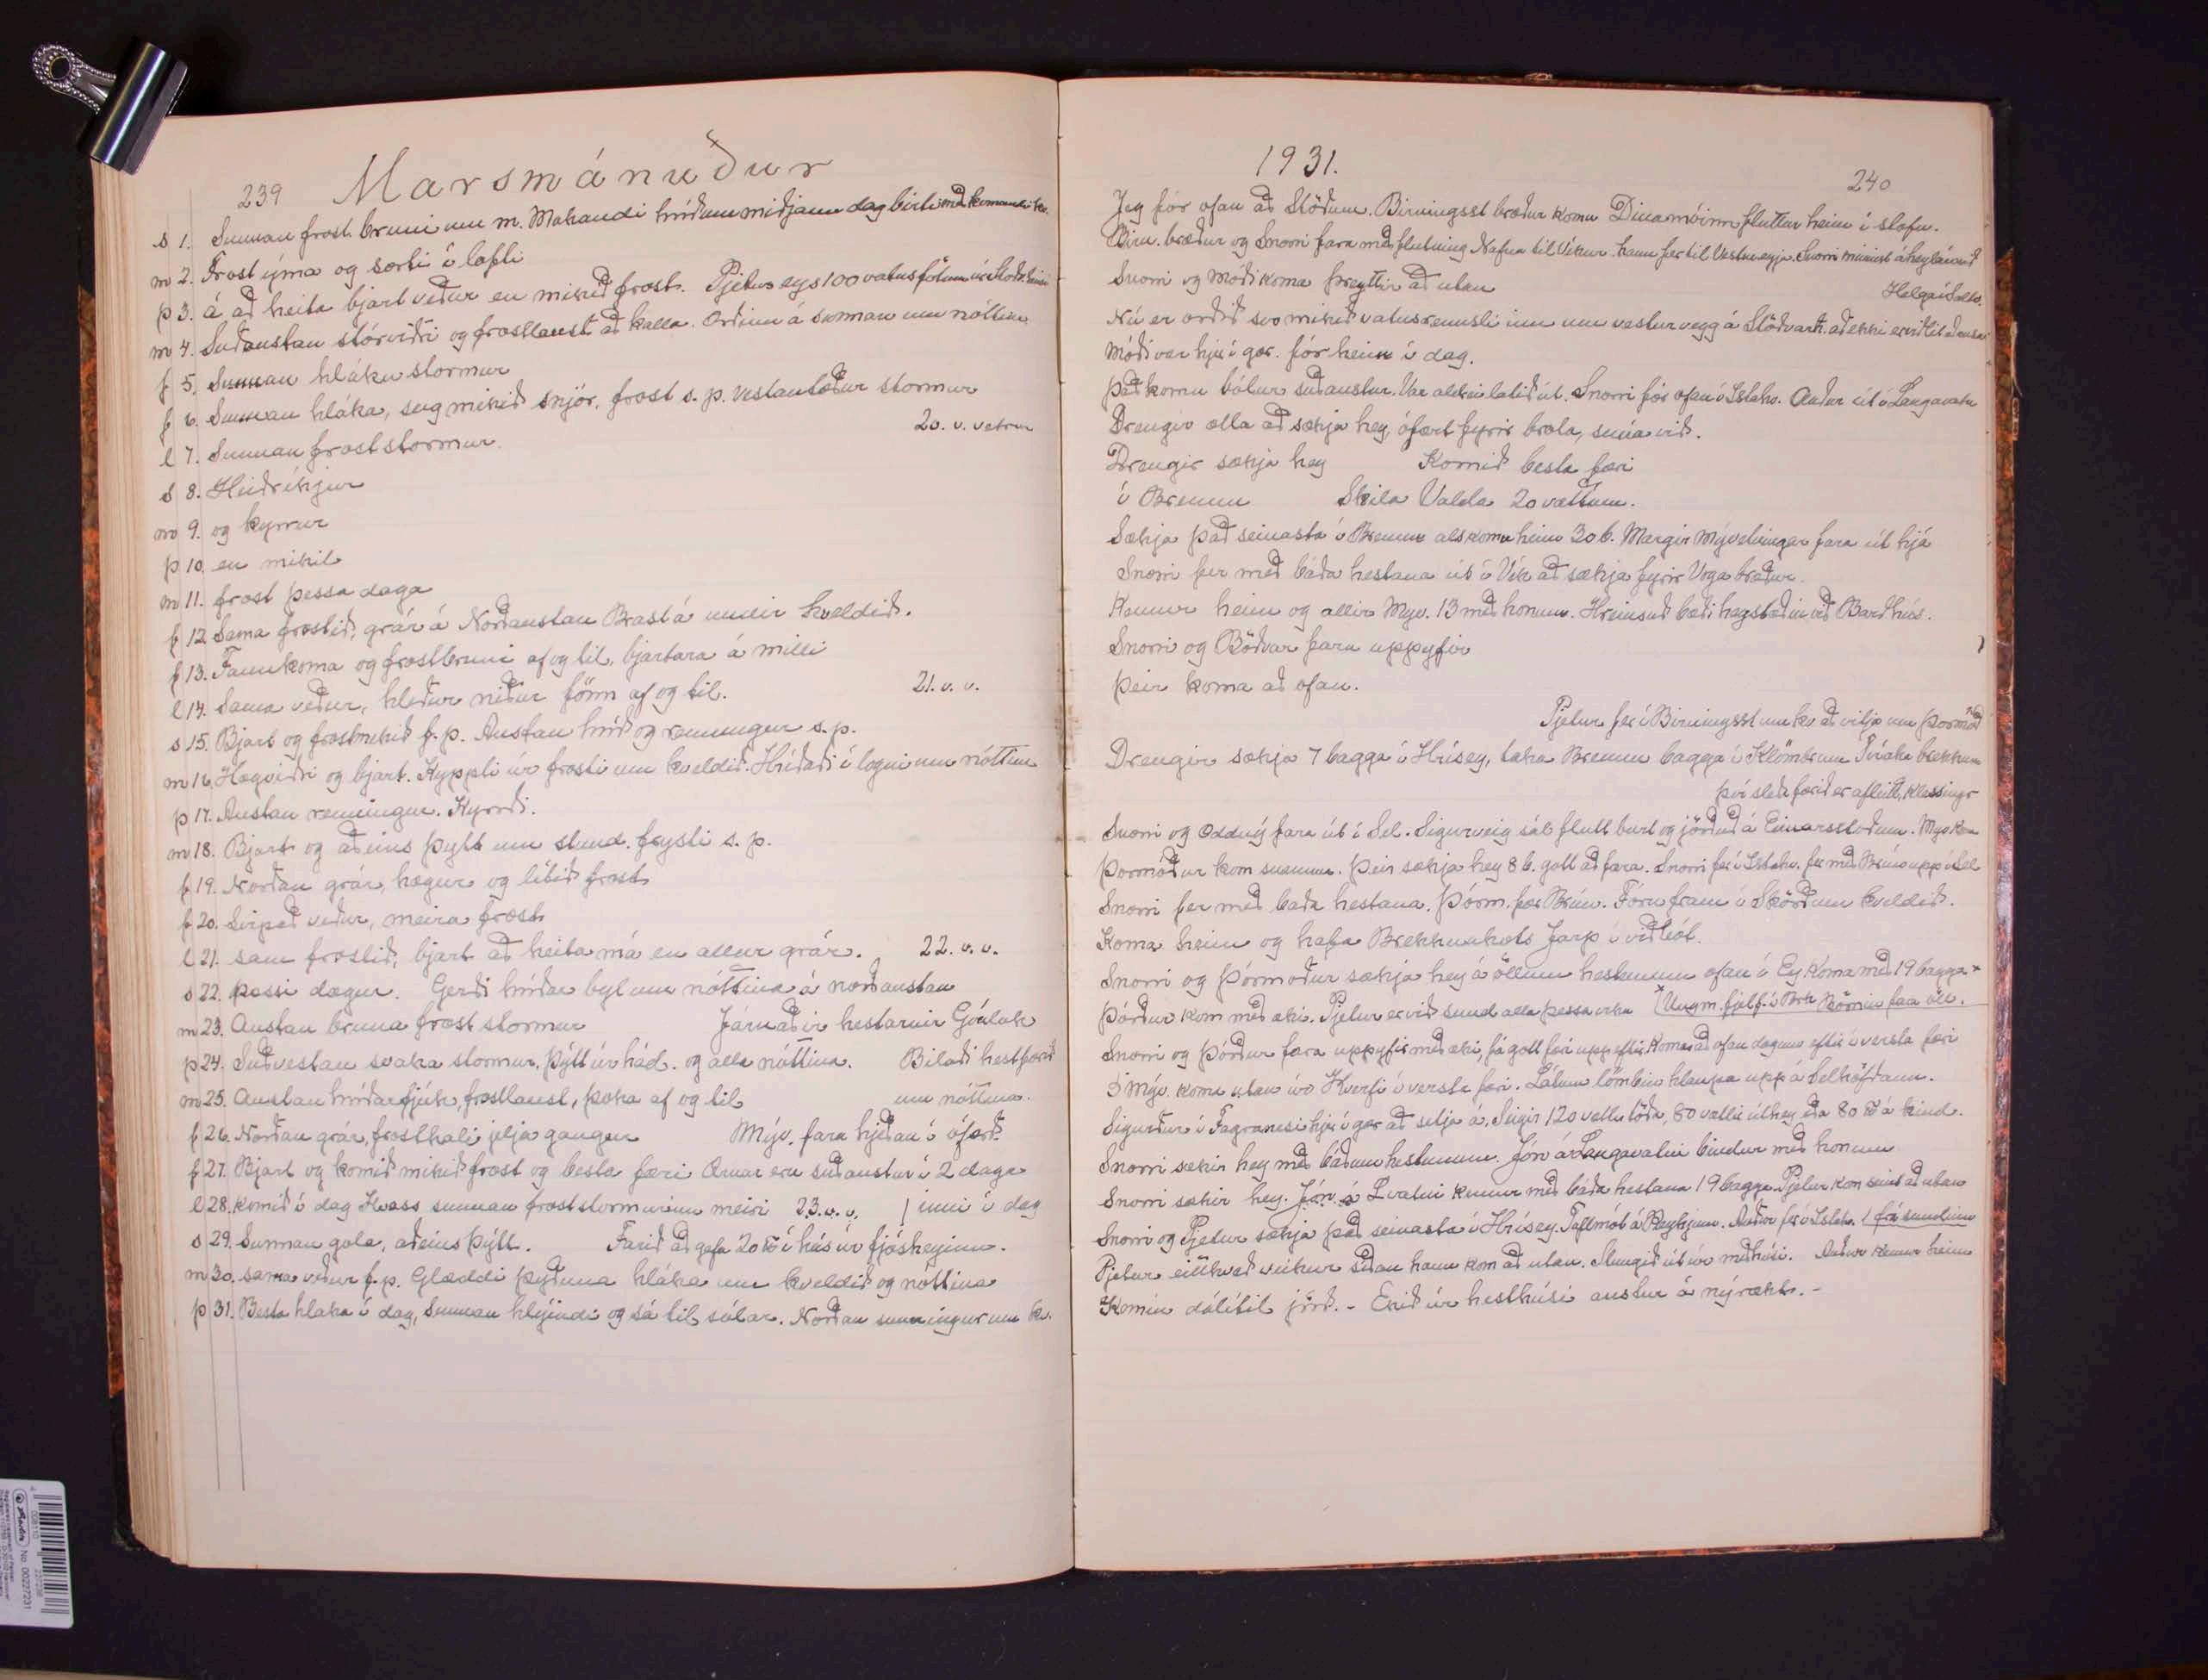 239 Marsmánuður
s 1. Sunnan frost bruni um m. Makandi hríðum miðjann dag birti með komandi kv.
m 2. Frost íma og sorti í lofti
þ 3. á að heita bjart veður en mikið frost. Pjetur eys 100 vatnsfötum úr
m 4. Suðaustan stórviðri og frostlaust að kalla. Orðinn á sunnan um nóttina
f 5. Sunnan hláku stormur
f 6. Sunnan hláka, seig mikið snjór, frost s. p. vestanlæður stormur
l 7. Sunnan froststormur. 20. v. vetrar
s 8. Heiðríkjur
m 9. og kyrrur
þ 10. en mikil
m 11. frost þessa daga
f 12. Sama frostið, grár á Norðaustan Brast á undir kveldið.
f 13. Fannkoma og frostbruni af og til, bjartara á milli
l 14. Sama veður, hleður niður fönn af og til. 21. v. v.
s 15. Bjart og frostmikið f. p. Austan hríð og renningur s. p.
m 16. Hægviðri og bjart. Kyppti úr frosti um kveldið. Hríðaði í logni um nóttina
þ 17. Austan renningur. Kyrrði.
m 18. Bjart og aðeins þýtt um stund. frysti s. p.
f 19. Norðan grár, hægur og lítið frost
f 20. Svipað veður, meira frost
l 21. sam frostið, bjart að heita má en allur grár. 22. v. v.
s 22. þessi dægur. Gerði hríðar byl um nóttina á norðaustan
m 23. Austan bruna frost stormur Járnaðir hestarnir
þ 24. Suðvestan svaka stormur, þýtt úr hád. og alla nóttina. Bilaði hestfærið
m 25. Austan hríðarfjúk, frostlaust, þoka af og til um nóttina.
f 26. Norðan grár, frosthali jelja gangur Mýv. fara hjeðan í ófærð.
f 27. Bjart og komið mikið frost og besta færi Arnar eru suðaustur í 2 daga
l 28. komið í dag Hvass sunnan froststormurinn meiri 23. v. v. | inni í dag
s 29. Sunnan gola, aðeins þýtt. Farið að gefa 20 ℔ í hús úr fjósheyinu.
m 30. sama veður f. p. Glæddi þýðuna hláka um kveldið og nóttina
þ 31. Besta hláka í dag, Sunnan hlýindi og sá til sólar. Norðan sunningur um kv.
1931. 240
Jeg fór ofan að Stöðum. Birningsst bræður komu Dinamóinn fluttur heim í stofu.
Birn. bræður og Snorri fara með flutning Nafna til Víkur. hann fer til Vestmeyja. Snorri minnist á heylánið
Snorri og Móði koma þreyttir að utan Helga í
Nú er orðið svo mikið vatnsrennsli inn um vestur vegg á að ekki er
Móði var hjer í gær. fór heim í dag.
það komu bólur suðaustur. Var ekki látið út. Snorri fór ofan í Auður út í Langavatn
Drengir ætla að sækja hey, ófært fyrir bræla, snúa við.
Drengir sækja hey Komið besta færi
í Bremnu Skila Valda 20 vættum.
Sækja það seinasta í Bremnu als komu heim 30 b. Margir Mývetningar fara út hjá
Snorri fer með báða hestana út í Vík að sækja fyrir Voga bræður.
Kemur heim og allir Mýv. 13 með honum. Hreinsuð bæði heystæðin við Barðhús.
Snorri og Böðvar fara uppyfir
þeir koma að ofan.
Pjetur fer í Birningsst um kv að vitja um Þormóð
Drengir sækja 7 bagga í Hrísey, taka Bremnu bagga í Klömbrum Tvíaka brekkum
því sleða færið er afleitt, Klessingr
Snorri og Oddný fara út í Sel. Sigurveig sál flutt burt og jörðuð á Einarsstöðum. Mýv koma
Þormóður kom snemma. Þeir sækja hey 8 b. gott að fara. Snorri fer í fer með Brún upp í Sel
Snorri fer með báða hestana. Þórm. fær Brún. Fóru fram í Skörðum kveldið.
Koma heim og hafa Brekknakots Jarp í viðbót.
Snorri og Þórmóður sækja hey á öllum hestunum ofan í Ey. Koma með 19 bagga
Þórður kom með æki. Pjetur er við sund alla þessa viku Ungm. fjel f. í Brk Börnin fara öll.
Snorri og Þórður fara uppyfir með æki, fá gott færi uppeftir. Koma að ofan daginn eftir í versta færi
5 Mýv. koma utan úr Hverfi í versta færi. Látum lömbin hlaupa upp á Selhöfðann.
Sigurður í Fagranesi hjer í gær að setja á. Segir 120 vætti töðu, 80 vættir úthey, eða 80 ℔ á kind.
Snorri sækir hey með báðum hestunum. Jón á Langavatni bindur með honum
Snorri sækir hey. Jón á Lvatni kemur með báða hestana 19 bagga. Pjetur kom seint að utan
Snorri og Pjetur sækja það seinasta í Hrísey. Taflmót á Reykjum. Auður fer í / frá sundinu
Pjetur eitthvað veikur síðan hann kom að utan. Stungið út úr miðhúsi. Auður kemur heim
Komin dálítil jörð. - Ekið úr hesthúsi austur á nýrækt. -